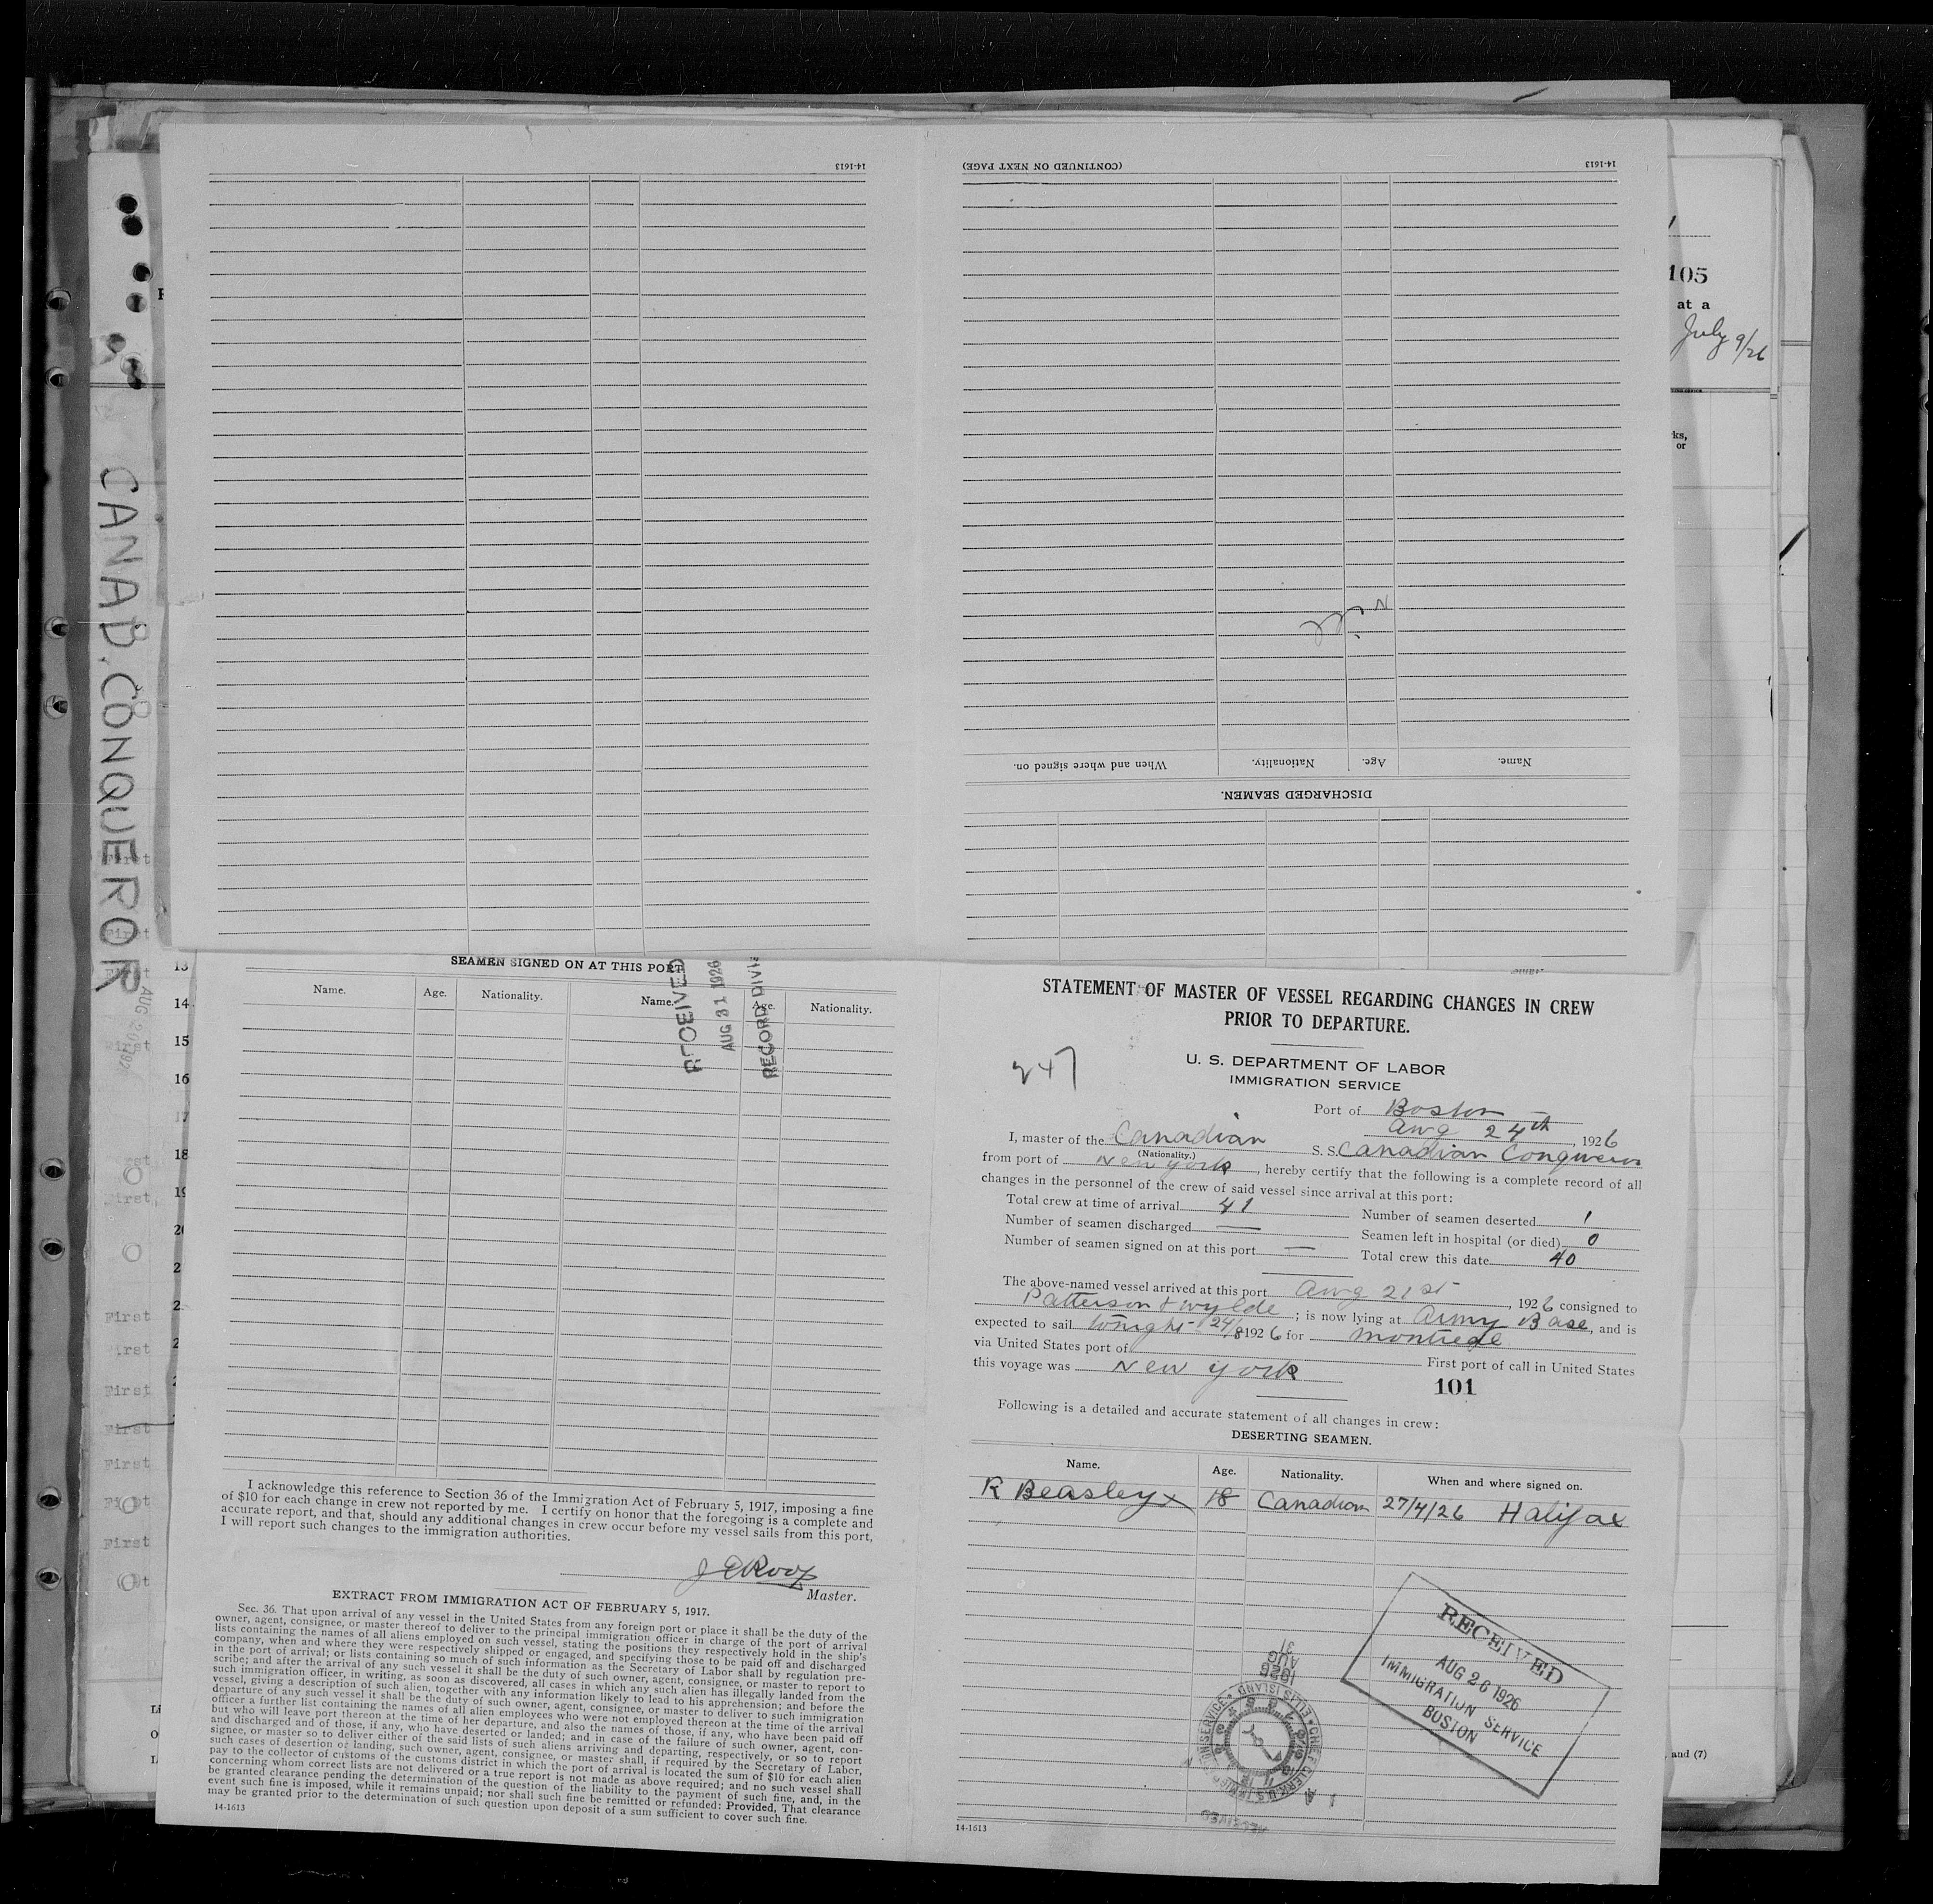 14-1613
(CONTINUED ON NEXT PAGE)
14-1613
105
at a
July 9/26
ks,
or
CANAD. CONQUEROR
When and where signed on.
Nationality.
Age.
Name.
DISCHARGED SEAMEN.
13
14
15
16
17
18
First
First
First
First
First
First
First
First
AUG
SEAMEN SIGNED ON AT THIS PORT
Name. Age. Nationality. Name. Age. Nationality.
RECEIVED
AUG 31 1926
RECORD DIVI
I acknowledge this reference to Section 36 of the Immigration Act of February 5, 1917, imposing a fine
of $10 for each change in crew not reported by me. I certify on honor that the foregoing is a complete and
accurate report, and that, should any additional changes in crew occur before my vessel sails from this port,
I will report such changes to the immigration authorities.
Master.
EXTRACT FROM IMMIGRATION ACT OF FEBRUARY 5, 1917.
Sec. 36. That upon arrival of any vessel in the United States from any foreign port or place it shall be the duty of the
owner, agent, consignee, or master thereof to deliver to the principal immigration officer in charge of the port of arrival
lists containing the names of all aliens employed on such vessel, stating the positions they respectively hold in the ship's
company, when and where they were respectively shipped or engaged, and specifying those to be paid off and discharged
in the port of arrival; or lists containing so much of such information as the Secretary of Labor shall by regulation pre-
scribe; and after the arrival of any such vessel it shall be the duty of such owner, agent, consignee, or master to report to
such immigration officer, in writing, as soon as discovered, all cases in which any such alien has illegally landed from the
vessel, giving a description of such alien, together with any information likely to lead to his apprehension; and before the
departure of any such vessel it shall be the duty of such owner, agent, consignee, or master to deliver to such immigration
officer a further list containing the names of all alien employees who were not employed thereon at the time of the arrival
but who will leave port thereon at the time of her departure, and also the names of those, if any, who have been paid off
and discharged and of those, if any, who have deserted or landed; and in case of the failure of such owner, agent, con-
signee, or master so to deliver either of the said lists of such aliens arriving and departing, respectively, or so to report
such cases of desertion or landing, such owner, agent, consignee, or master shall, if required by the Secretary of Labor,
pay to the collector of customs of the customs district in which the port of arrival is located the sum of $10 for each alien
concerning whom correct lists are not delivered or a true report is not made as above required; and no such vessel shall
be granted clearance pending the determination of the question of the liability to the payment of such fine, and, in the
event such fine is imposed, while it remains unpaid; nor shall such fine be remitted or refunded: Provided, That clearance
may be granted prior to the determination of such question upon deposit of a sum sufficient to cover such fine.
14-1613
STATEMENT OF MASTER OF VESSEL REGARDING CHANGES IN CREW
PRIOR TO DEPARTURE.
247
U. S. DEPARTMENT OF LABOR
IMMIGRATION SERVICE
Port of Boston
Aug 24th, 1926
I, master of the Canadian S. S. Canadian Conqueror
(Nationality.)
from port of New York, hereby certify that the following is a complete record of all
changes in the personnel of the crew of said vessel since arrival at this port:
Total crew at time of arrival 41 Number of seamen deserted 1
Number of seamen discharged — Seamen left in hospital (or died) 0
Number of seamen signed on at this port — Total crew this date 40
The above-named vessel arrived at this port Aug 21st, 1926 consigned to
Patterson & Wylde; is now lying at Army Base, and is
expected to sail tonight 24/8 1926 for Montreal
via United States port of First port of call in United States
this voyage was New York
101
Following is a detailed and accurate statement of all changes in crew:
DESERTING SEAMEN.
Name. Age. Nationality. When and where signed on.
R Beasley x 18 Canadian 27/4/26 Halifax
RECEIVED
AUG 26 1926
IMMIGRATION SERVICE
BOSTON
AUG 31
1926
ELLIS ISLAND
CHIEF CLERK U.S.
RECEIVED
14-1613
and (7)